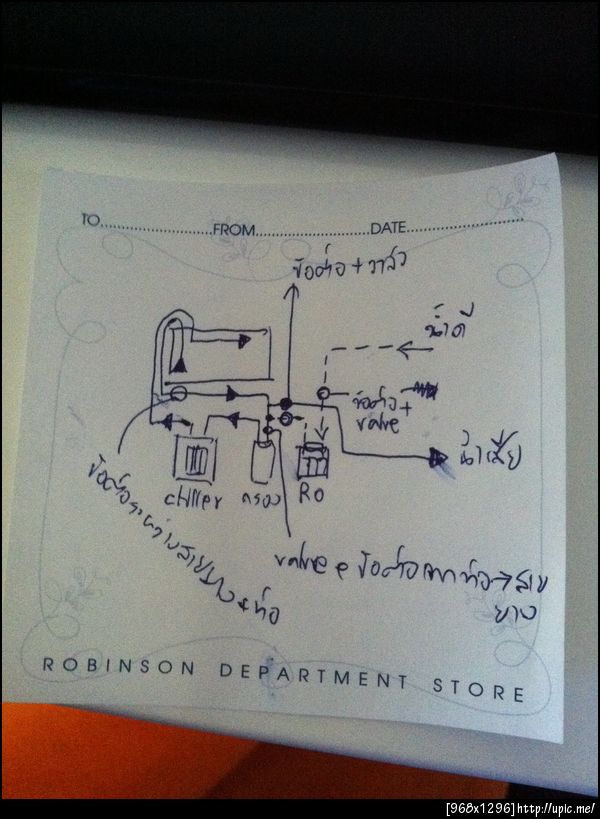 TO.....................FROM.....................DATE.....................
ข้อต่อ + วาล์ว
น้ำดี
ข้อต่อ +
valve
น้ำเสีย
chiller
กรอง
RO
ข้อต่อระหว่างสายยาง + ท่อ
valve e ข้อต่อจากท่อ → สาย
ยาง
ROBINSON DEPARTMENT STORE
[968x1296]http://upic.me/